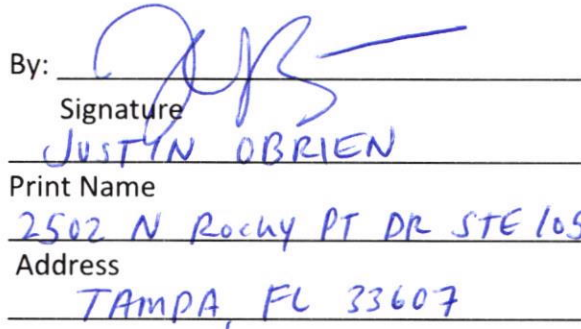 By:
Signature
JUSTYN OBRIEN
Print Name
2502 N Rocky PT DR STE 105
Address
TAMPA, FL 33607